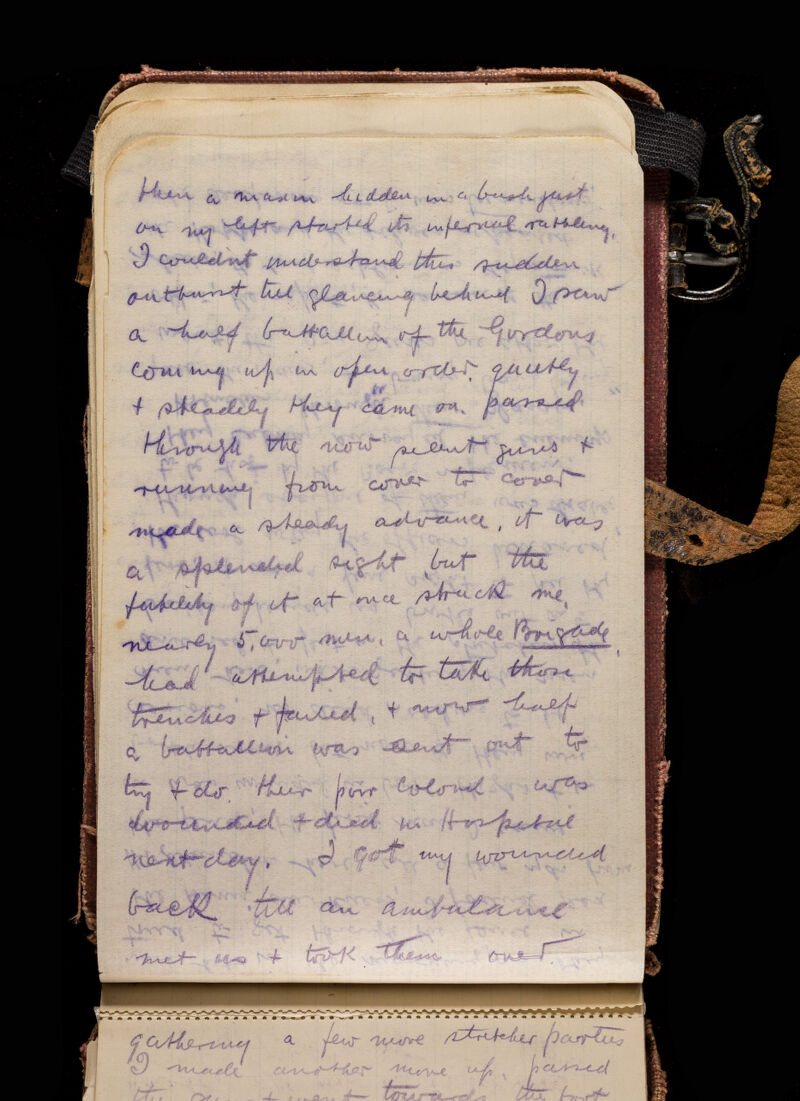 then a maxim hidden in a bush just
on my left started its infernal rattling,
I couldnt understand this sudden
outburst till glancing behind I saw
a half battallion of the Gordons
coming up in open order, quietly
+ steadily they came on, passed
through the now silent guns +
running from cover to cover
made a steady advance, it was
a splendid sight but the
futility of it at once struck me,
nearly 5,000 men, a whole Brigade,
had attempted to take those
trenches + failed, + now half
a battallion was sent out to
try + do. their poor Colonel was
wounded + died in Hospital
next day. I got my wounded
back till an ambulance
met us + took them over.
gathering a few more stretcher parties
I made another move up, passed
the + went towards the